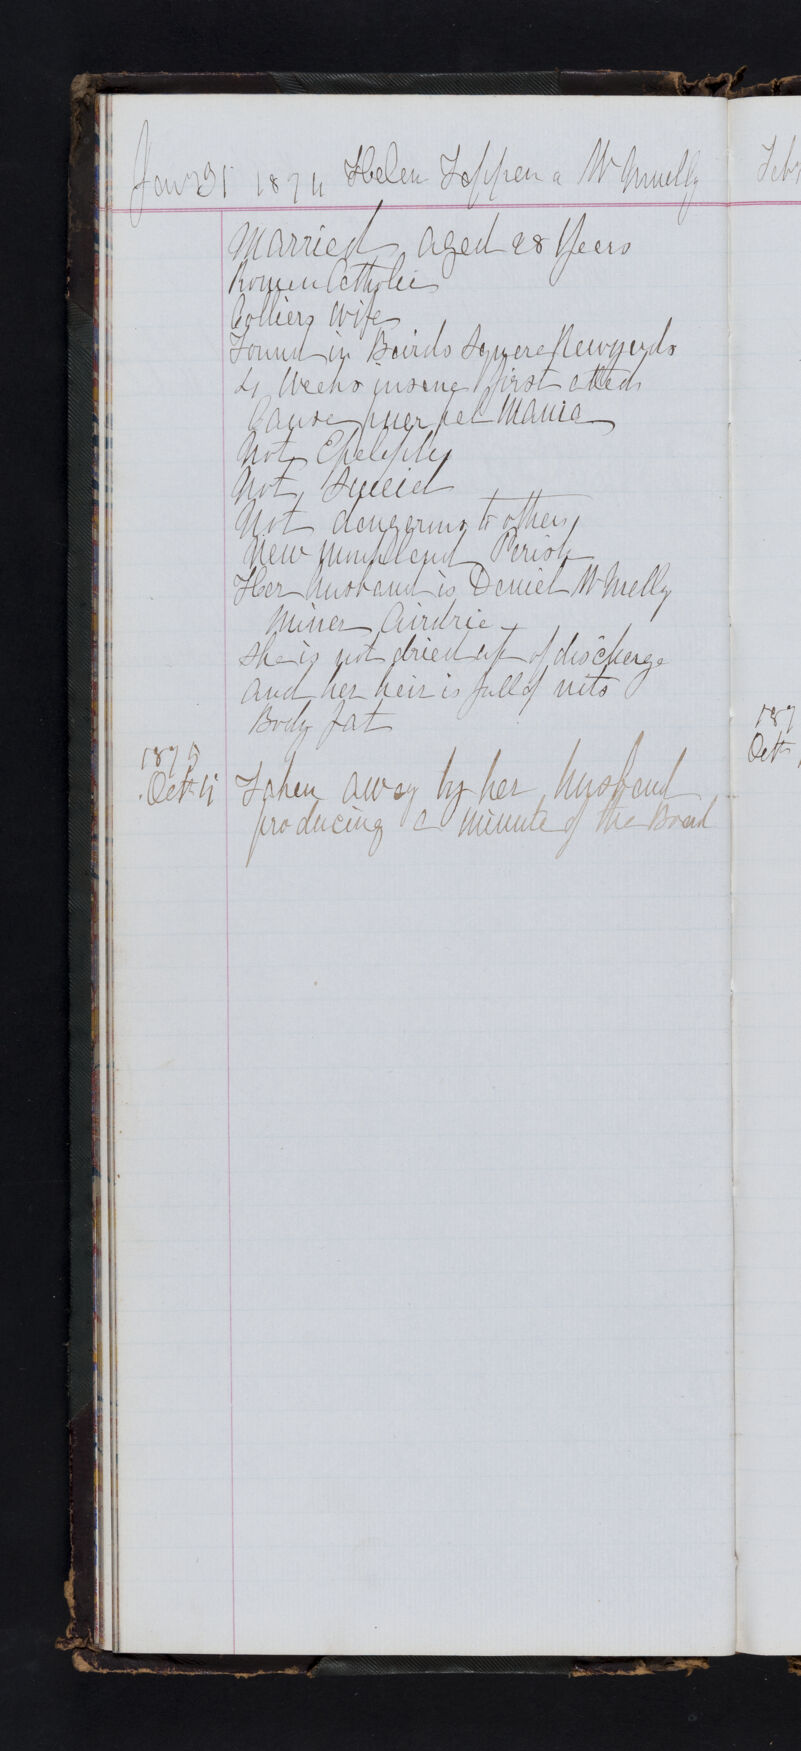 Jan 31 1874 Helen Toppen a McNnelly
Married aged 28 Years
Roman Catholic
Colliers Wife
Found in Bairds Square Newyards
4 Weeks insane first attack
Cause puerpel Mania
Not Epeleptic
Not Suicid
Not dangerous to others
New Monkland Parish
Her husband is Daniel McNelly
Miner Airdrie
she is not dried up of discharge
and her hair is full of nits
Body fat
1875
Oct 4 Taken away by her husband
producing a minute of the Board
Feb
187
Oct